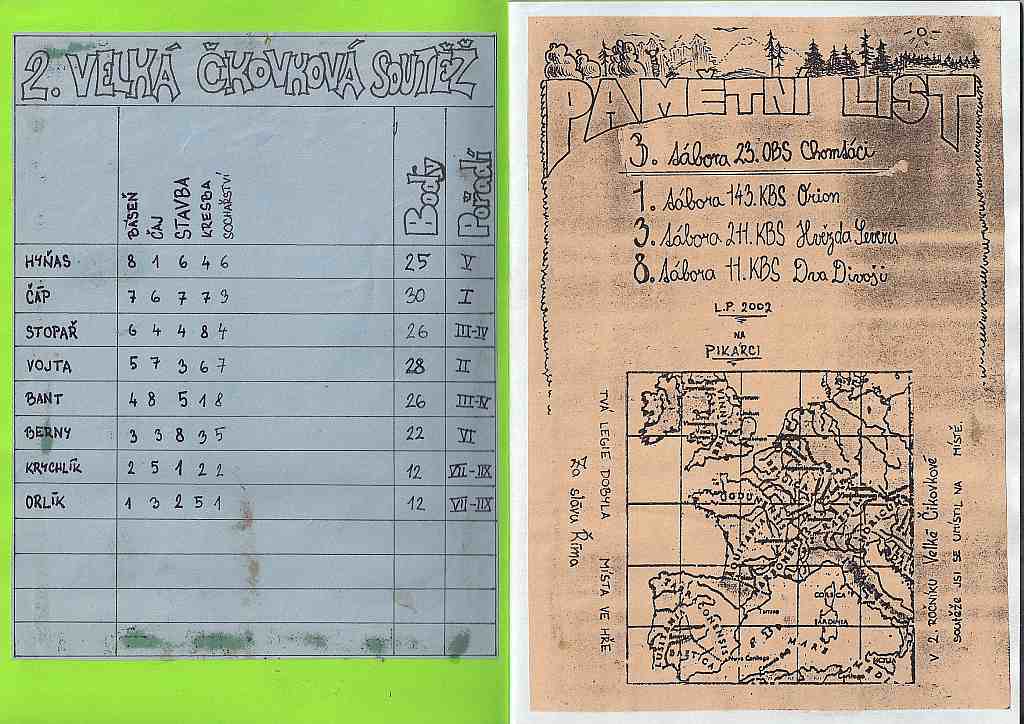 2. VELKÁ ČKOVKOVÁ SOUTĚŽ
BÁSEŇ ČAJ STAVBA KRESBA SOCHAŘSTVÍ Body Pořadí
HYŇAS 8 1 6 4 6 25 V
ČÁP 7 6 7 7 3 30 I
STOPAŘ 6 4 4 8 4 26 III-IV
VOJTA 5 7 3 6 7 28 II
BANT 4 8 5 1 8 26 III-IV
BERNY 3 3 8 3 5 22 VI
KRYCHLÍK 2 5 1 2 2 12 VII-IIX
ORLÍK 1 3 2 5 1 12 VII-IIX
PAMĚTNÍ LIST
3. tábora 23.OBS Chomťáci
1. tábora 143.KBS Orion
3. tábora 211.KBS Hvězda Severu
8. tábora 11.KBS Dva Divoší
L.P. 2002
NA
PIKARCI
TVÁ LEGIE DOBYLA MÍSTA VE HŘE
Za slávu Říma
CORSICA
SARDINIA
SICILIA
BAETICA
Nova Carthago
V 2. ROČNÍKU Velké Čtkovkové
soutěže JSI SE UMÍSTIL NA MÍSTĚ.